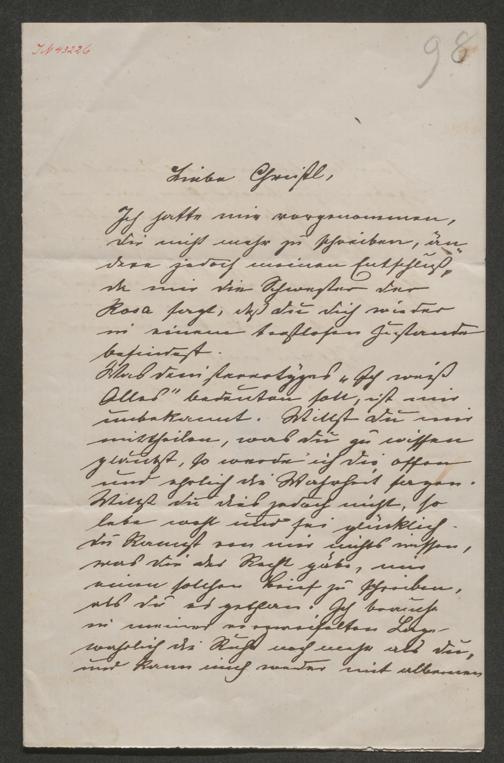 IN 43226
98
Liebe Christl,
Ich hatte mir vorgenommen,
dir nicht mehr zu schreiben, än
dere jedoch meinen Entschluß,
da mir die Schwester der
Rosa sagt, daß du dich wieder
in einem trostlosen Zustande
befindest.
Was dein stereotypes „Ich weiß
Alles" bedeuten soll, ist mir
unbekannt. Willst du mir
mittheilen, was du zu wissen
glaubst, so werde ich dir offen
und ehrlich die Wahrheit sagen.
Willst du dies jedoch nicht, so
lebe wohl und sei glücklich.
Du kannst von mir nichts wissen,
was dir das Recht gäbe, mir
einen solchen Brief zu schreiben,
als du es gethan. Ich brauche
in meiner verzweifelten Lage
wahrlich die Ruhe noch mehr als du,
und kann mich weder mit albernen